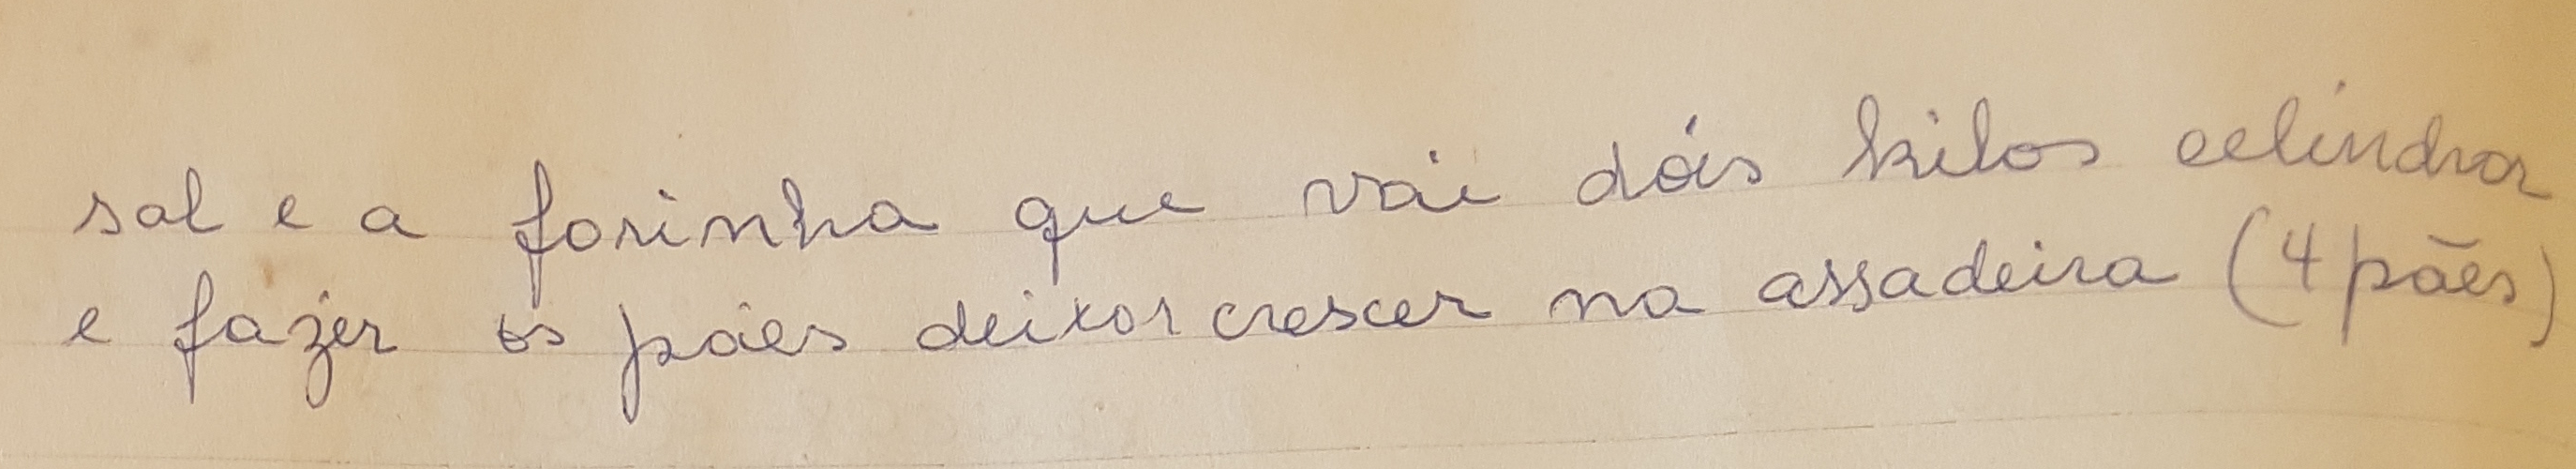 sal e a farinha que vai dóis kilos celindrar
e fazer os pães deixar crescer na assadeira (4 pães)